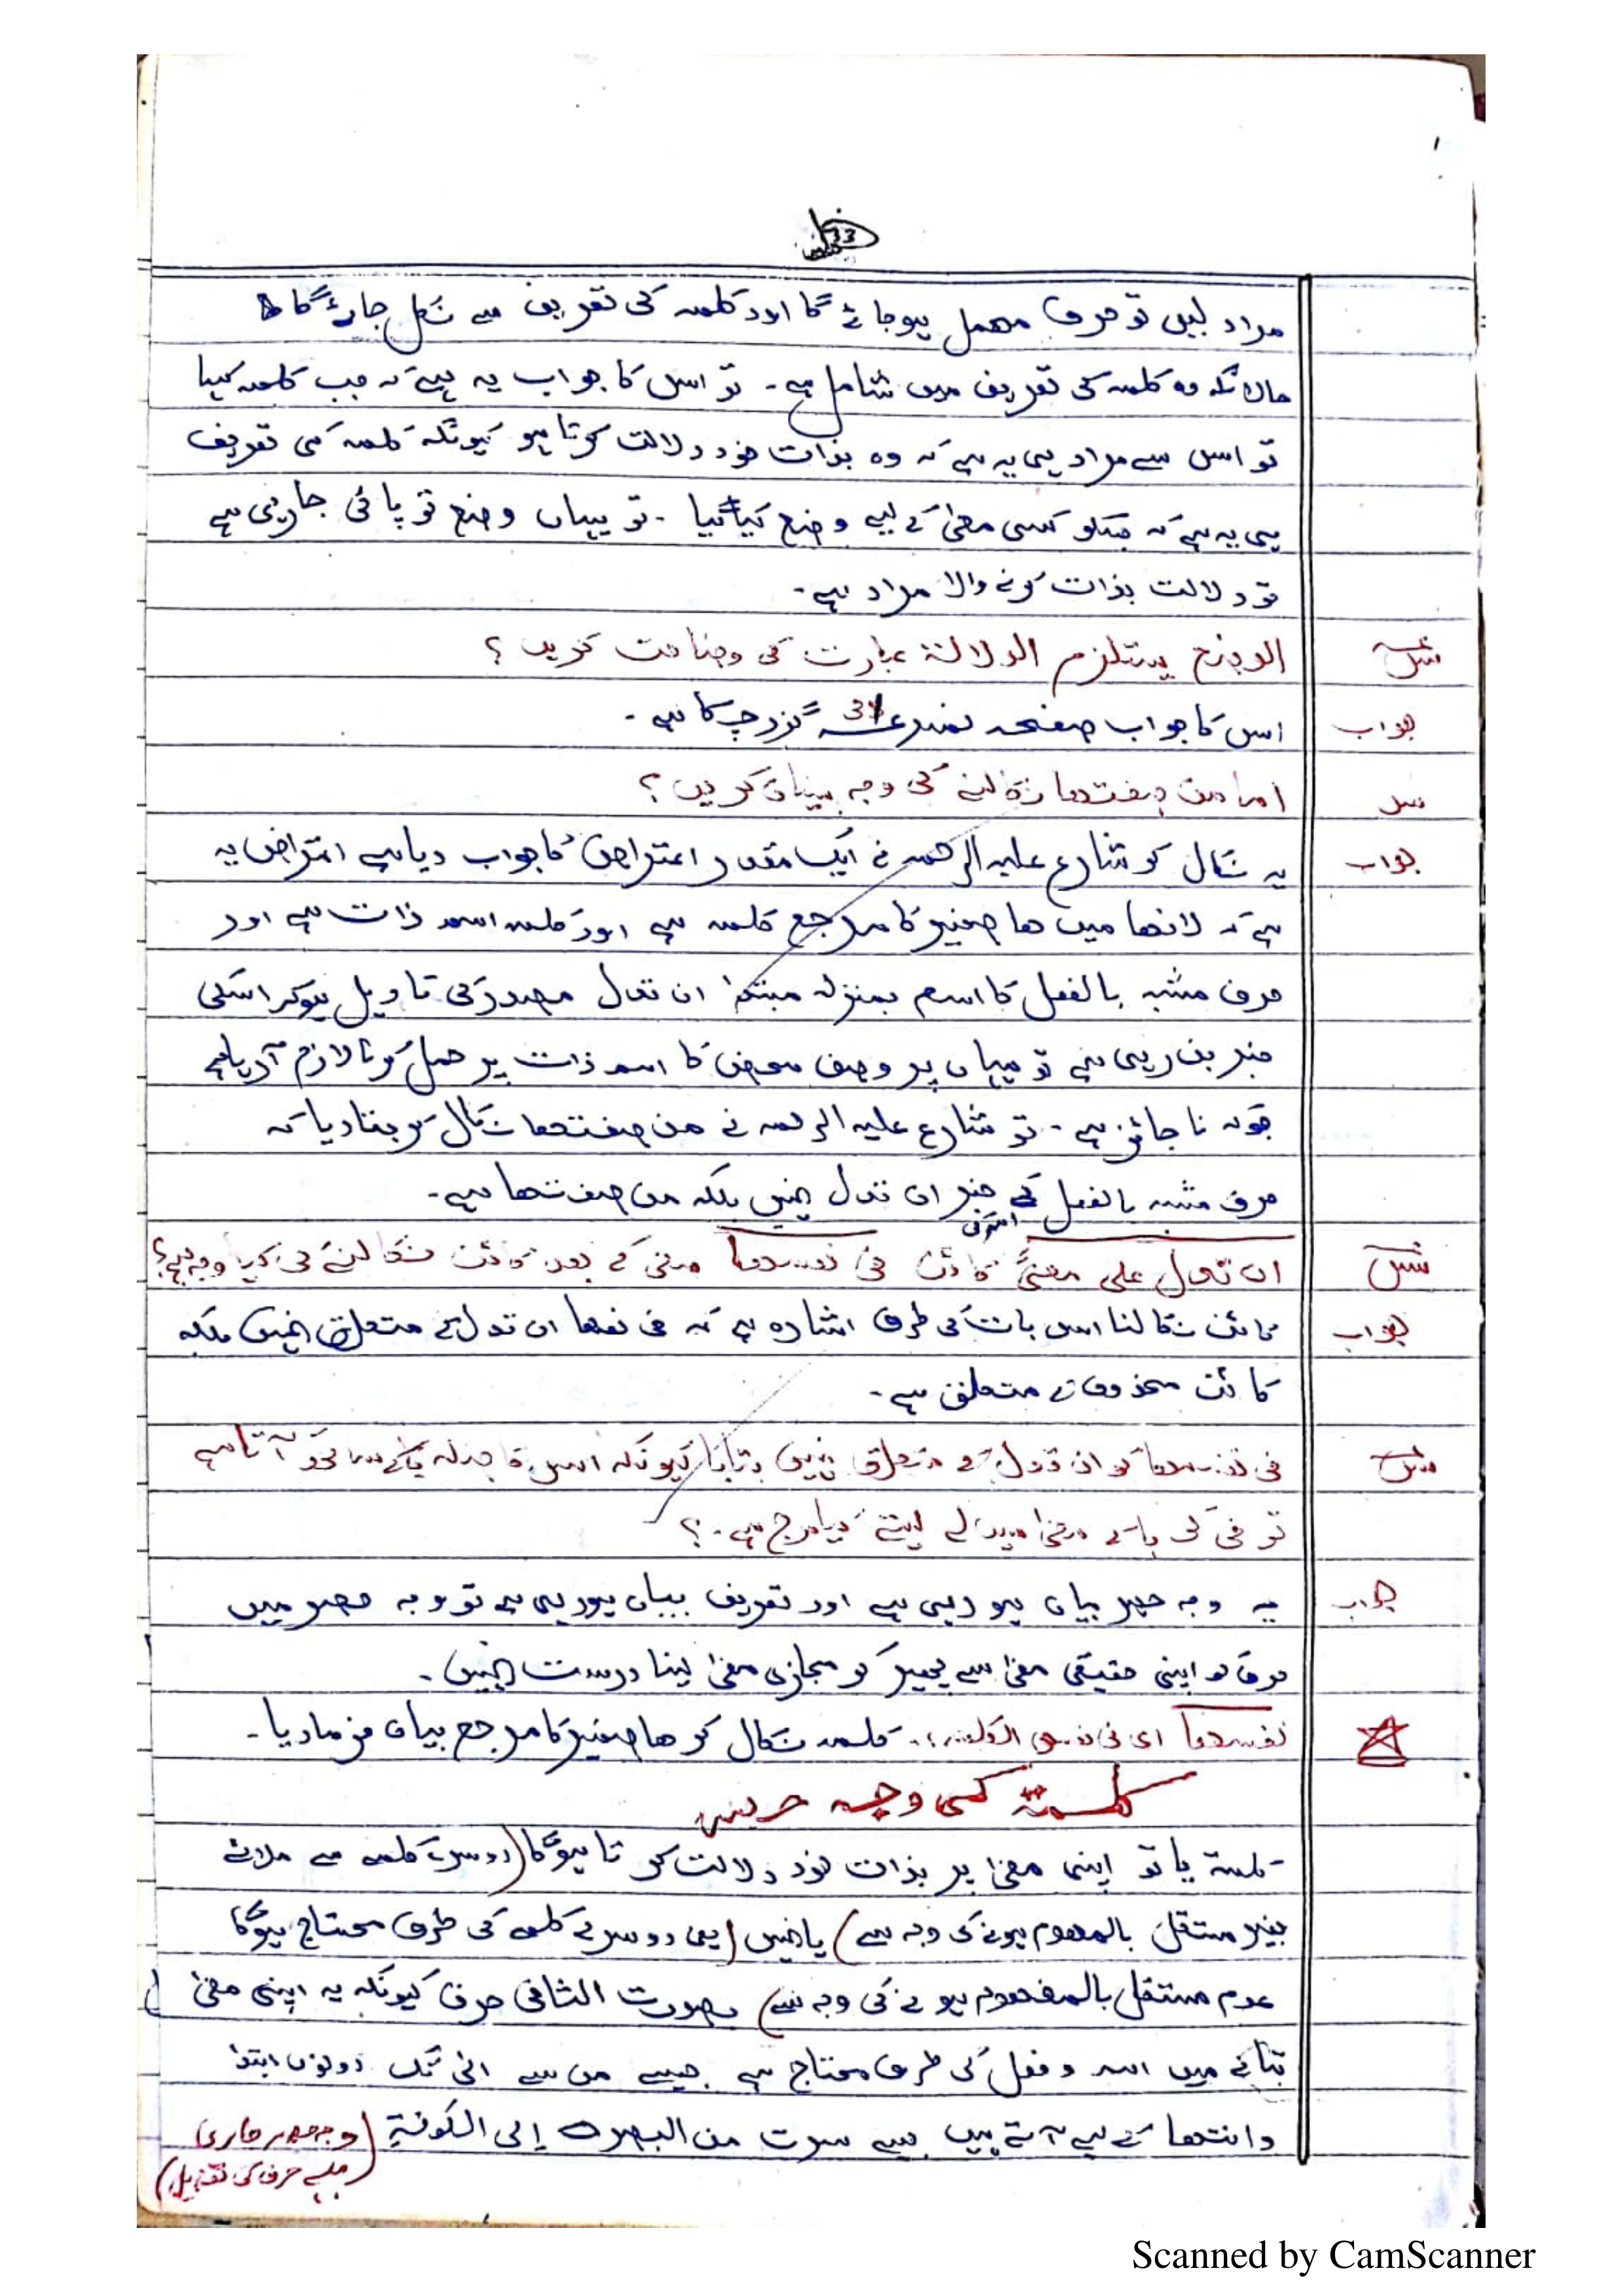 33
مراد لیں تو حرف مہمل ہوجائے گا اور کلمہ کی تعریف سے نکل جائے گا
حالانکہ وہ کلمہ کی تعریف میں شامل ہے۔ تو اس کا جواب یہ ہے کہ جب کلمہ کہا
تو اس سے مراد ہی یہ ہے کہ وہ بذات خود دلالت کرتا ہو کیونکہ کلمہ کی تعریف
ہی یہ ہے کہ جسکو کسی معنیٰ کے لیے وضع کیا گیا۔ تو یہاں وضع تو پائی جارہی ہے
تو دلالت بذات کرنے والا مراد ہے۔
س الوضع یستلزم الدلالۃ عبارت کی وضاحت کریں؟
جواب اس کا جواب صفحہ نمبر 31 گزر چکا ہے۔
س اما من صفتها نکالنے کی وجہ بیان کریں؟
جواب یہ نکال کر شارع علیہ الرحمہ نے ایک مقدر اعتراض کا جواب دیا ہے اعتراض یہ
ہے کہ لانها میں ها ضمیر کا مرجع کلمہ ہے اور کلمہ اسم ذات ہے اور
حرف مشبہ بالفعل کا اسم بمنزلہ مبتدا ان تدل مصدر کی تاویل ہوکر اسکی
خبر بن رہی ہے تو یہاں پر وصف محض کا اسم ذات پر حمل کرنا لازم آرہا ہے
جوکہ ناجائز ہے۔ تو شارع علیہ الرحمہ نے من صفتها نکال کر بتا دیا کہ
حرف مشبہ بالفعل کی خبر ان تدل نہیں بلکہ من صفتها ہے۔
س ان تدل علی معنیً کائن فی نفسها معنی کے بعد کائن نکالنے کی کیا وجہ ہے؟
جواب کائن نکالنا اس بات کی طرف اشارہ ہے کہ فی نفسها ان تدل کے متعلق نہیں بلکہ
کائن محذوف کے متعلق ہے۔
س فی نفسها کو ان تدل کے متعلق نہیں بنایا کیونکہ اس کا صلہ آتا ہے
تو فی کو با کے معنیٰ میں لے لیتے کیا حرج ہے۔؟
جواب یہ وجہ حصر بیان ہو رہی ہے اور تعریف بیان ہورہی ہے تو وجہ حصر میں
حرف کو اپنی حقیقی معنیٰ سے پھیر کر مجازی معنیٰ لینا درست نہیں۔
نفسها ای فی نفس الکلمة، کلمہ نکال کر ها ضمیر کا مرجع بیان فرمادیا۔
کلمة کی وجہ حصر
کلمة یا تو اپنی معنیٰ پر بذات خود دلالت کرتا ہوگا (دوسرے کلمہ سے ملائے
بغیر مستقل بالمفهوم ہونے کی وجہ سے) یا نہیں (یعنی دوسرے کلمہ کی طرف محتاج ہوگا
عدم مستقل بالمفهوم ہونے کی وجہ سے) بصورت الثانی حرف کیونکہ یہ اپنی معنیٰ
بتانے میں اسم و فعل کی طرف محتاج ہے جیسے من سے الی تک دونوں ابتدا
وانتها کے لیے آتے ہیں جیسے سرت من البصرة إلى الكوفة (وجہ حصر جاری
ہے حرف کی تفصیل)
Scanned by CamScanner